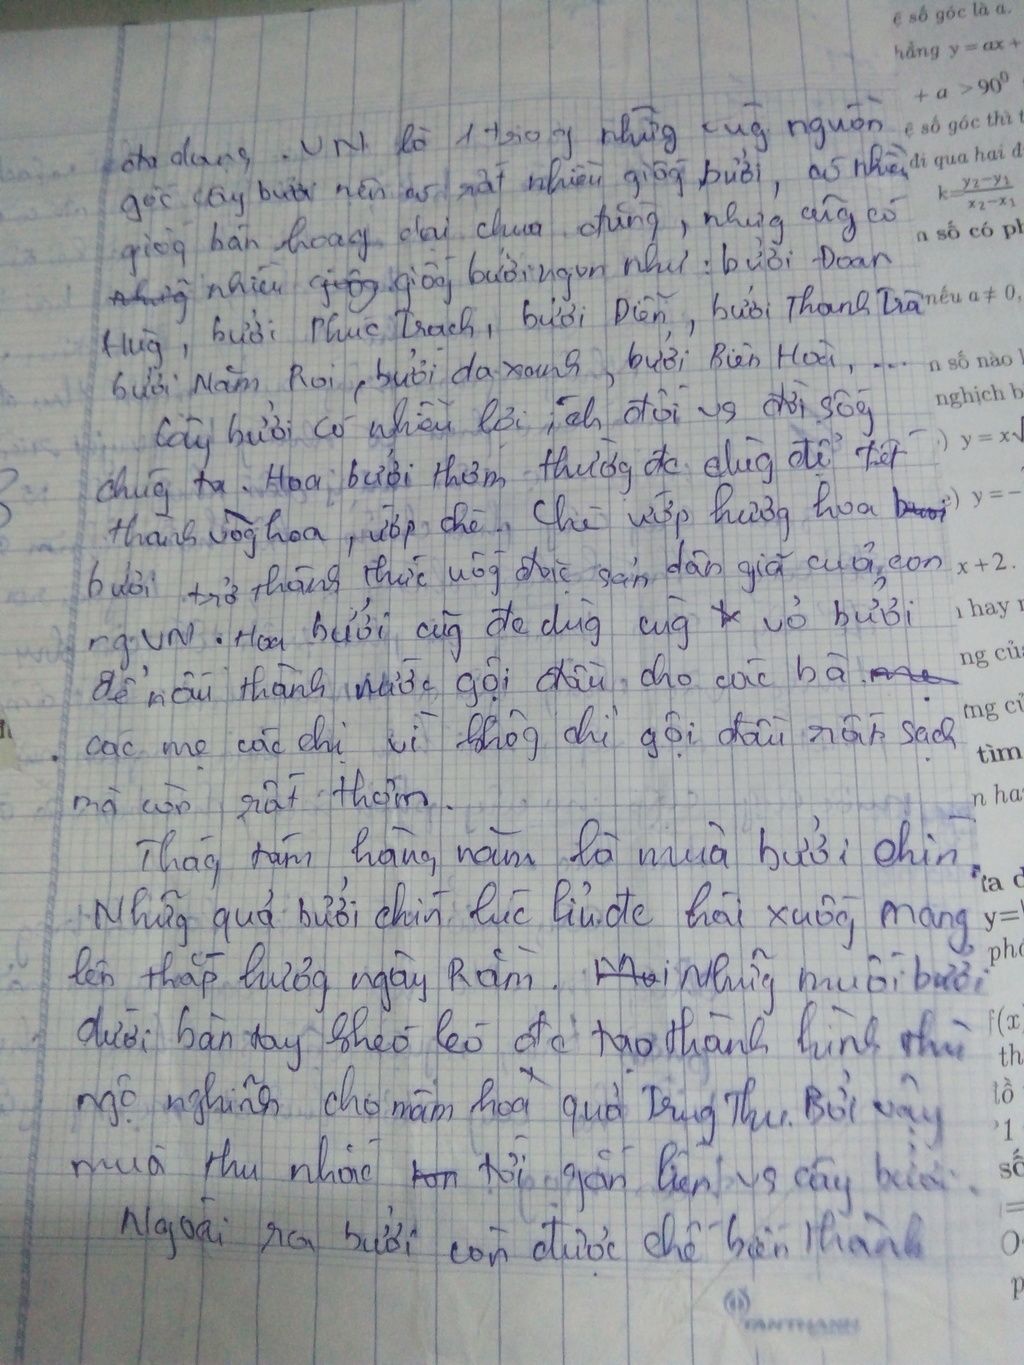 đa dạng. VN là 1 trog những vùg nguồn
gốc cây bưởi nên có rất nhiều giốg bưởi, có nhiều
giốg bán hoag dại chua đắng, nhưg cũg có
nhiều giốg bưởi ngon như: bưởi Đoan
Hùg, bưởi Phúc Trạch, bưởi Diễn, bưởi Thanh Trà
bưởi Năm Roi, bưởi da xanh, bưởi Biên Hoà, ...
Cây bưởi có nhiều lợi ích đối vs đời sốg
chúg ta. Hoa bưởi thơm thườg đc dùg để kết
thành vòg hoa, ướp chè. Chè ướp hươg hoa
bưởi trở thành thức uốg đặc sản dân giã của con
ng VN. Hoa bưởi cũg đc dùg cùg vỏ bưởi
để nấu thành nước gội đầu cho các bà
các mẹ các chị vì khôg chỉ gội đầu rất sạch
mà còn rất thơm.
Thág tám hàng năm là mùa bưởi chín.
Nhữg quả bưởi chín lúc lỉu đc hái xuốg mang
lên thắp hươg ngày Rằm. Nhữg múi bưởi
dưới bàn tay khéo léo đc tạo thành hình thù
ngộ nghĩnh cho mâm hoa quả Trug Thu. Bởi vậy
mùa thu nhắc tới gắn liền vs cây bưởi.
Ngoài ra bưởi còn được chế biến thành
TANTHANH
ệ số góc là a.
hẳng y = ax +
+ a > 90⁰
ệ số góc thì t
đi qua hai đ
k = y₂−y₁ / x₂−x₁
n số có ph
nếu a ≠ 0,
n số nào l
nghịch b
) y = x√
) y = −
x + 2.
hay n
ng củ
ng củ
tìm
n ha
ta d
y =
phố
f(x
th
số